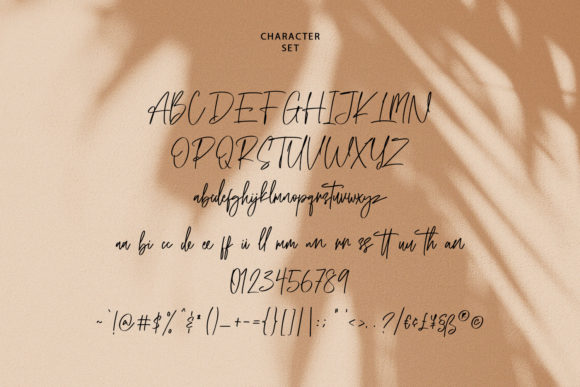 CHARACTER
SET
ABCDEFGHIJKLMN
OPQRSTUVWXYZ
abcdefghijklmnopqrstuvwxyz
aa bi cc de ee ff ii ll mm nn rr ss tt uu th an
0123456789
~`!@#$%^&*()_+-={}[]|:;"'<>,.?/€¢£¥§ß®©